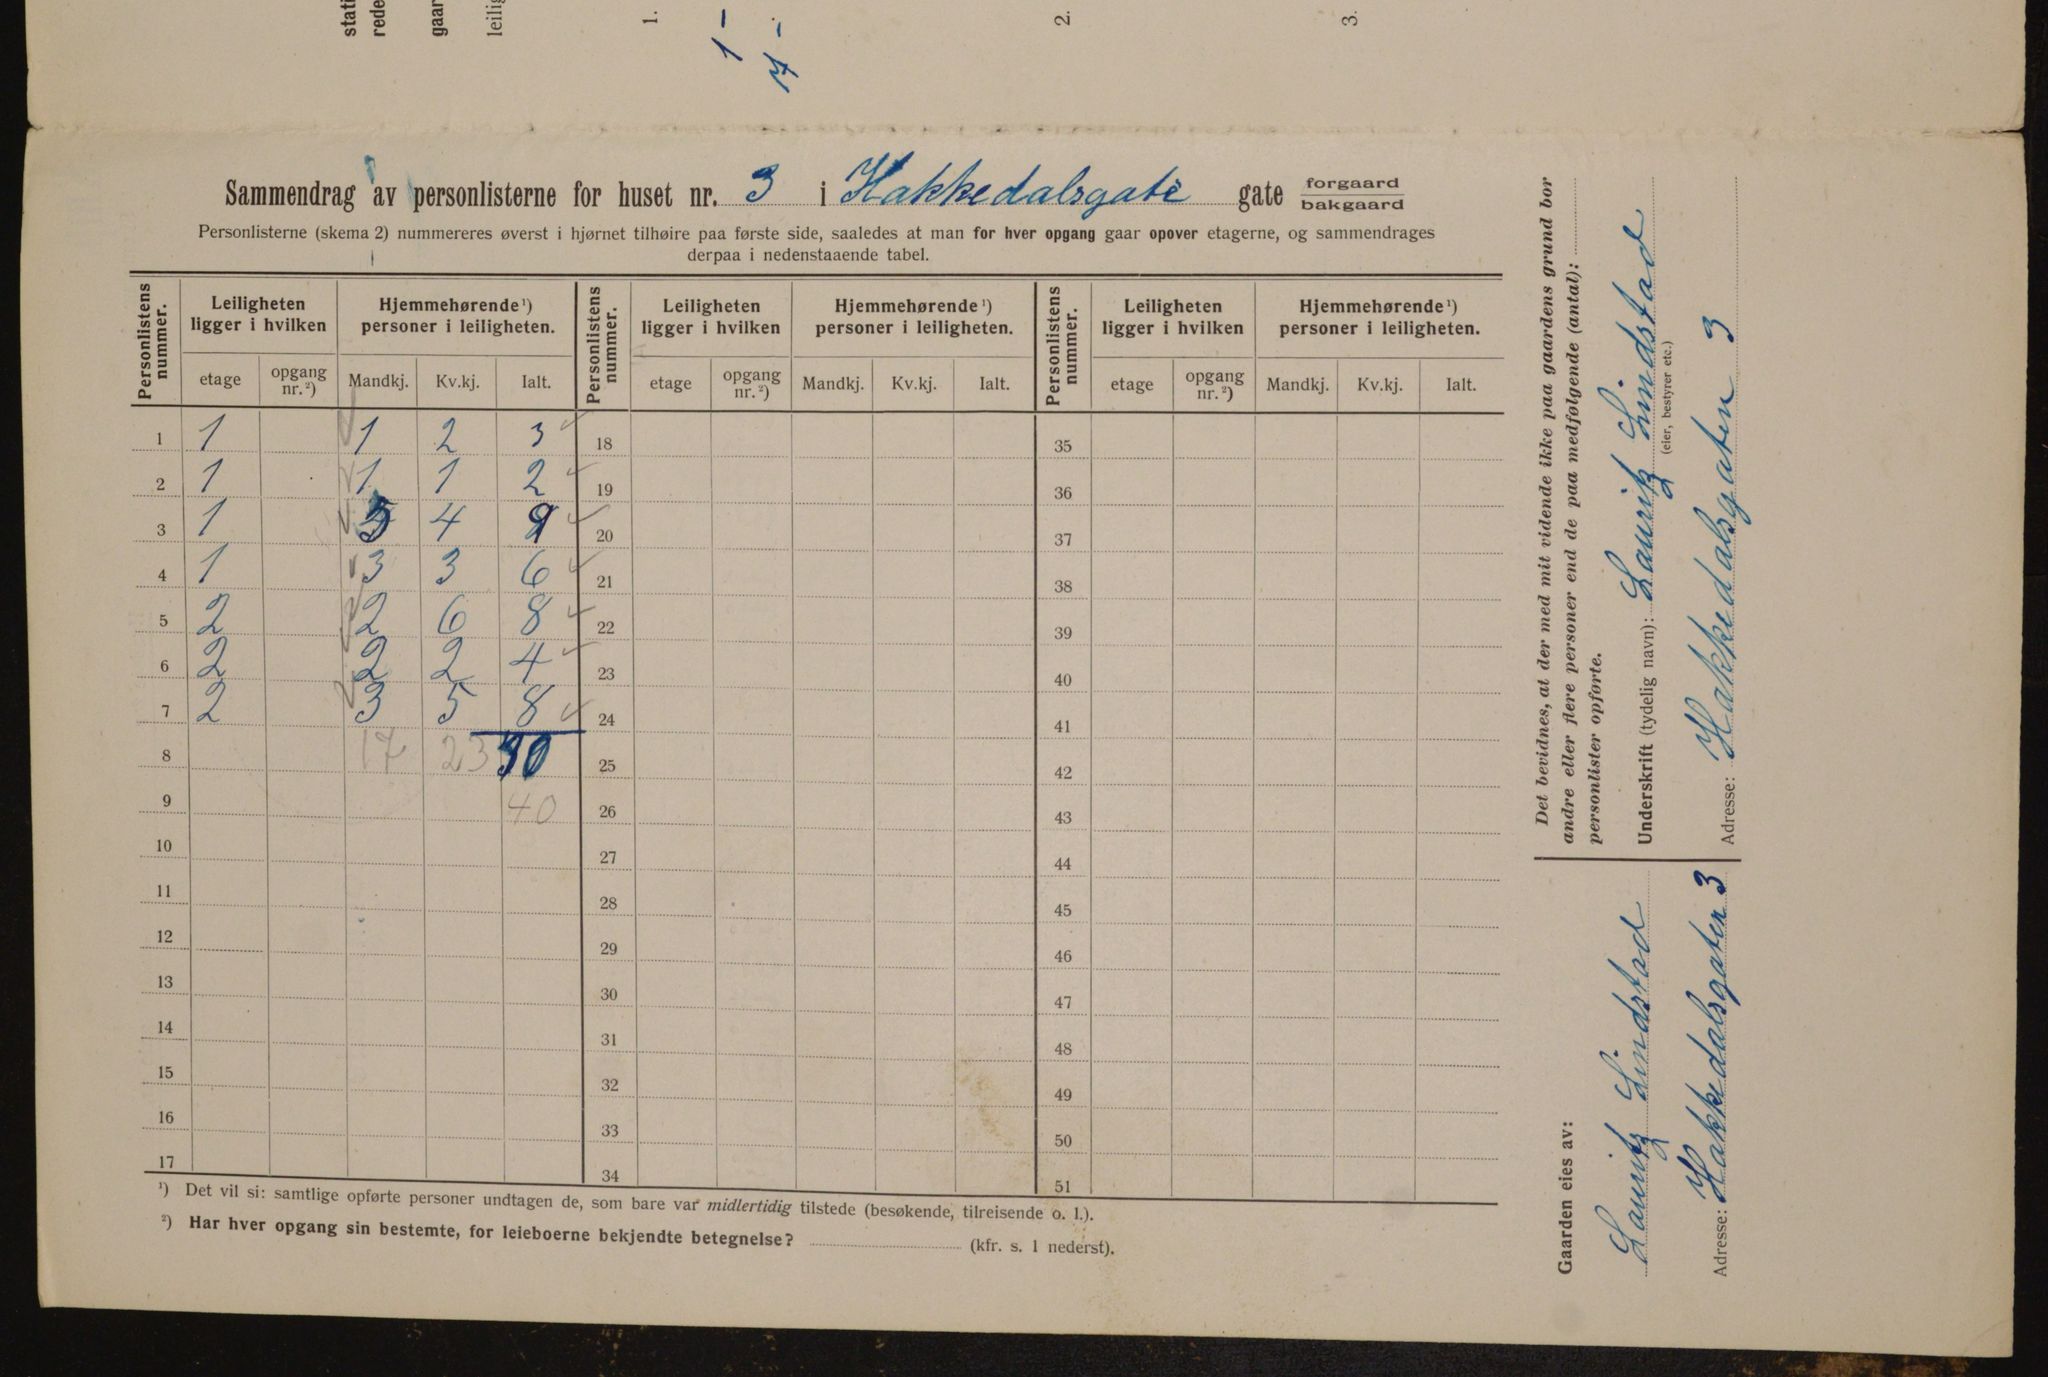 stati
rede
gaar
leilig
1.
1 -
7 -
2.
3.
Sammendrag av personlisterne for huset nr. 3 i Hakkedalsgate gate forgaard bakgaard
Personlisterne (skema 2) nummereres øverst i hjørnet tilhøire paa første side, saaledes at man for hver opgang gaar opover etagerne, og sammendrages
derpaa i nedenstaaende tabel.
Personlistens nummer. Leiligheten ligger i hvilken Hjemmehørende ¹) personer i leiligheten. Personlistens nummer. Leiligheten ligger i hvilken Hjemmehørende ¹) personer i leiligheten. Personlistens nummer. Leiligheten ligger i hvilken Hjemmehørende ¹) personer i leiligheten.
etage opgang nr. ²) Mandkj. Kv.kj. Ialt. etage opgang nr. ²) Mandkj. Kv.kj. Ialt. etage opgang nr. ²) Mandkj. Kv.kj. Ialt.
1 1 1 2 3 18 35
2 1 1 1 2 19 36
3 1 5 4 9 20 37
4 1 3 3 6 21 38
5 2 2 6 8 22 39
6 2 2 2 4 23 40
7 2 3 5 8 24 41
8 17 23 25 42
9 40 26 43
10 27 44
11 28 45
12 29 46
13 30 47
14 31 48
15 32 49
16 33 50
17 34 51
¹) Det vil si: samtlige opførte personer undtagen de, som bare var midlertidig tilstede (besøkende, tilreisende o. l.).
²) Har hver opgang sin bestemte, for leieboerne bekjendte betegnelse? (kfr. s. 1 nederst).
Det bevidnes, at der med mit vidende ikke paa gaardens grund bor
andre eller flere personer end de paa medfølgende (antal):
personlister opførte.
Underskrift (tydelig navn): Lauritz Lindstad
(eier, bestyrer etc.)
Adresse: Hakkedalsgaten 3
Gaarden eies av:
Lauritz Lindstad
Adresse: Hakkedalsgaten 3